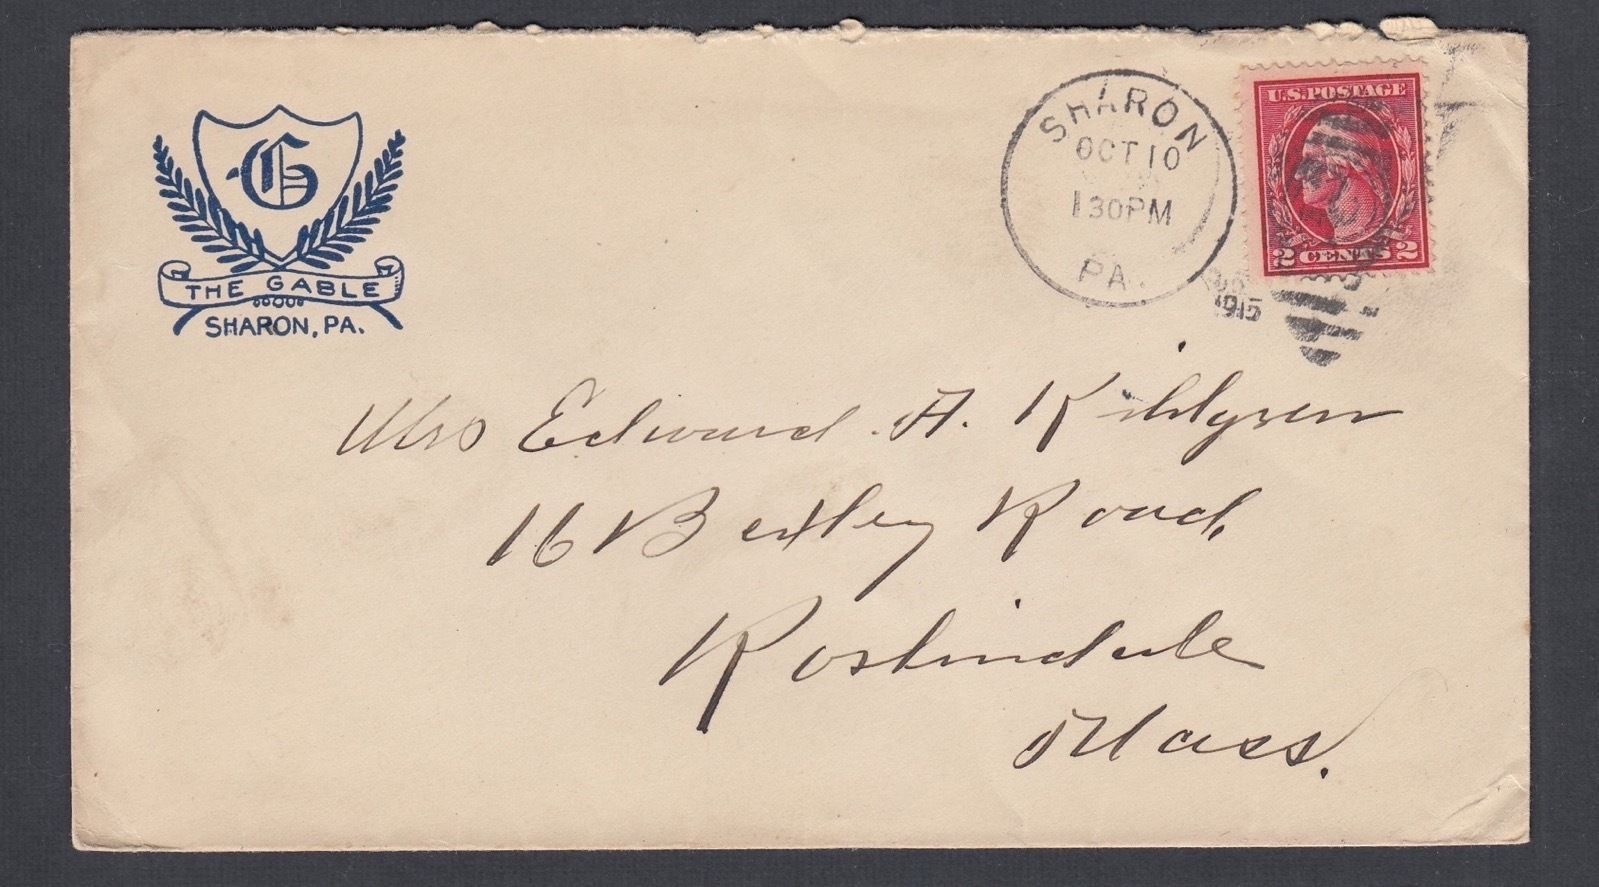 G
THE GABLE
SHARON, PA.
SHARON
OCT 10
1 30 PM
PA.
1915
U.S. POSTAGE
2 CENTS 2
Mrs Edward A.
16 Bexley Road,
Roslindale
Mass.